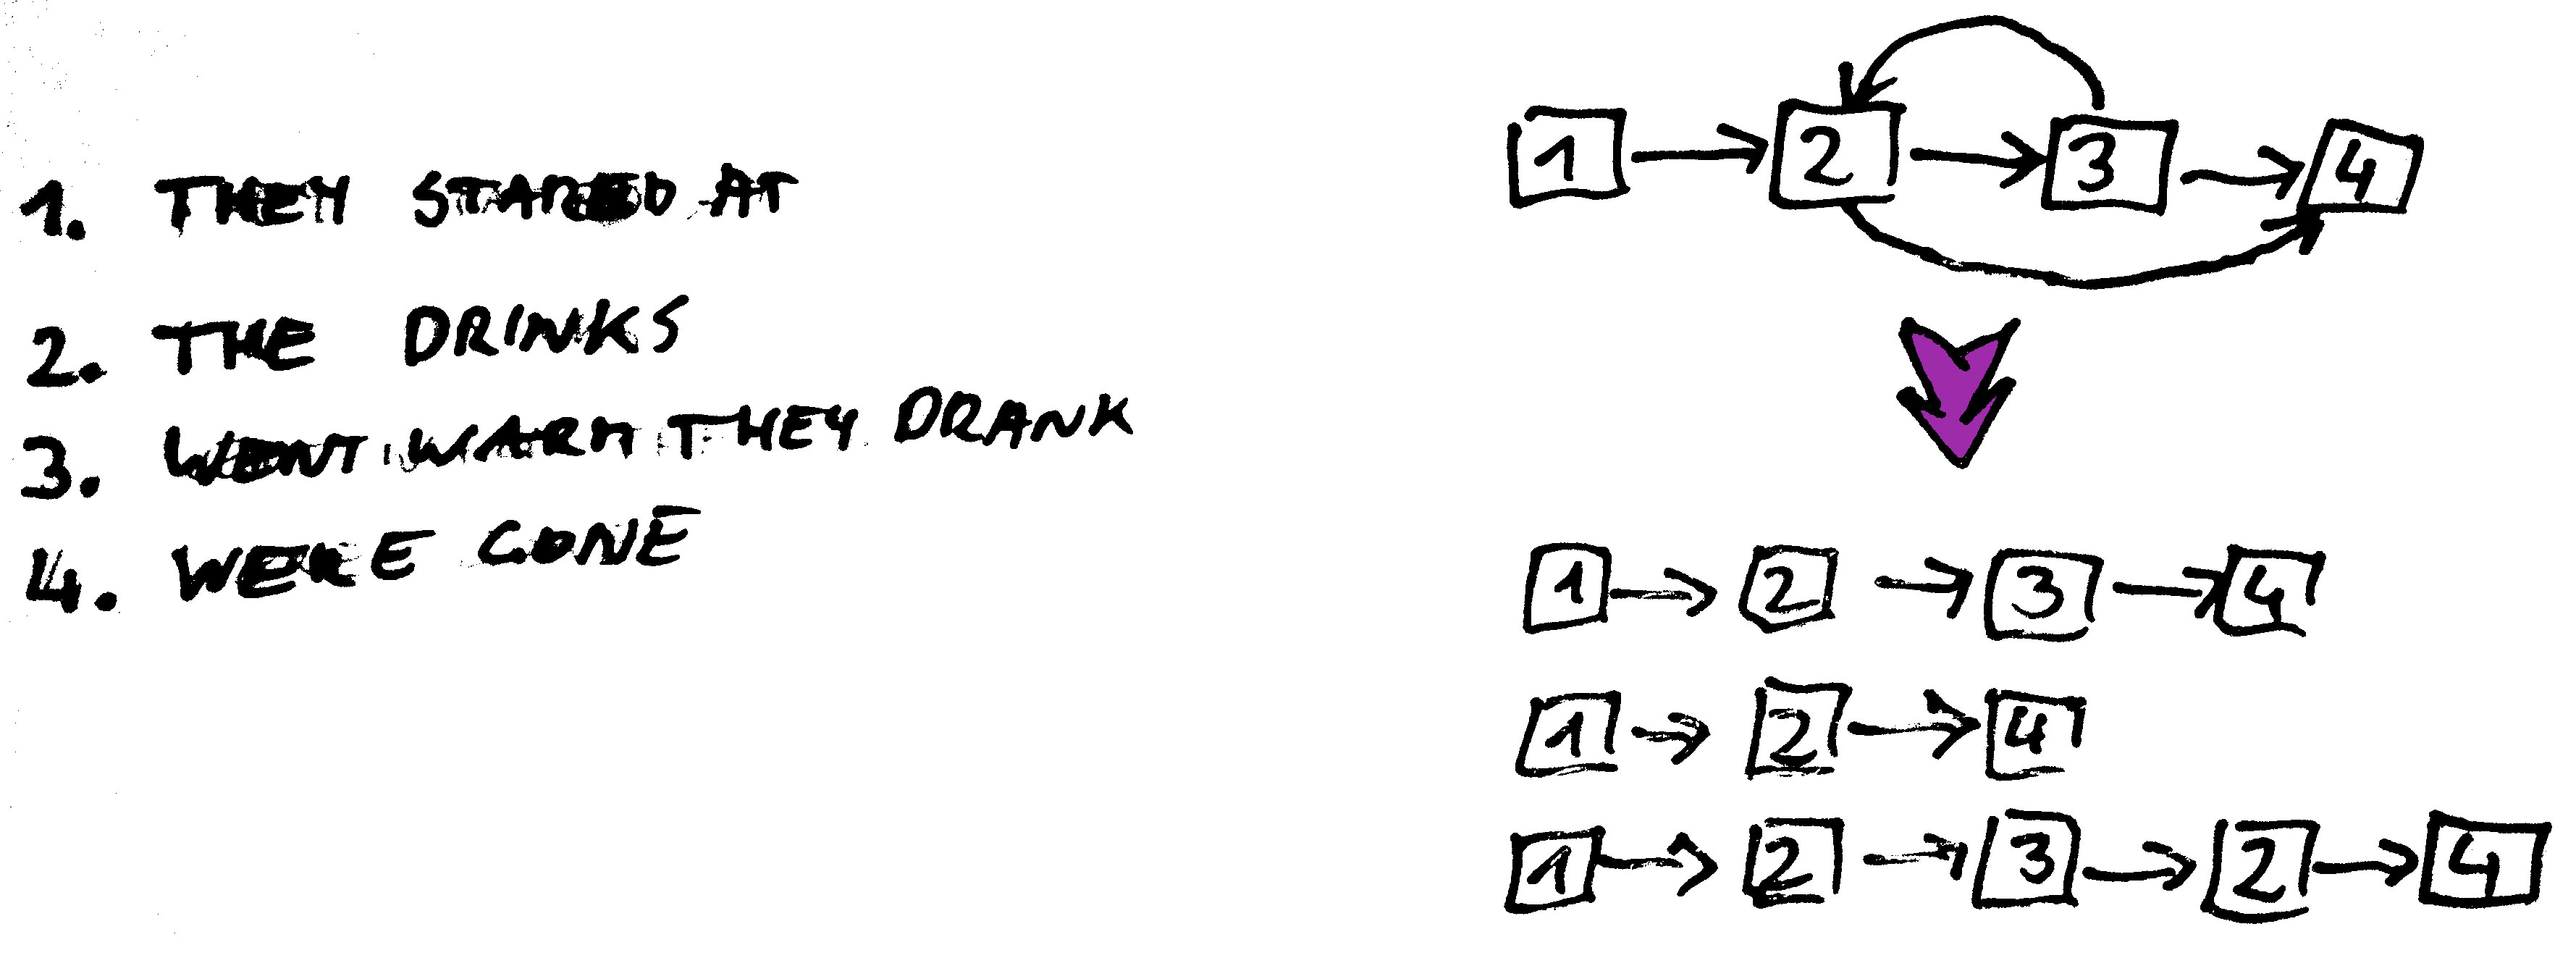 1. THEY STARED AT
2. THE DRINKS
3. WENT WARM THEY DRANK
4. WERE GONE
1 2 3 4
1 2 3 4
1 2 4
1 2 3 2 4